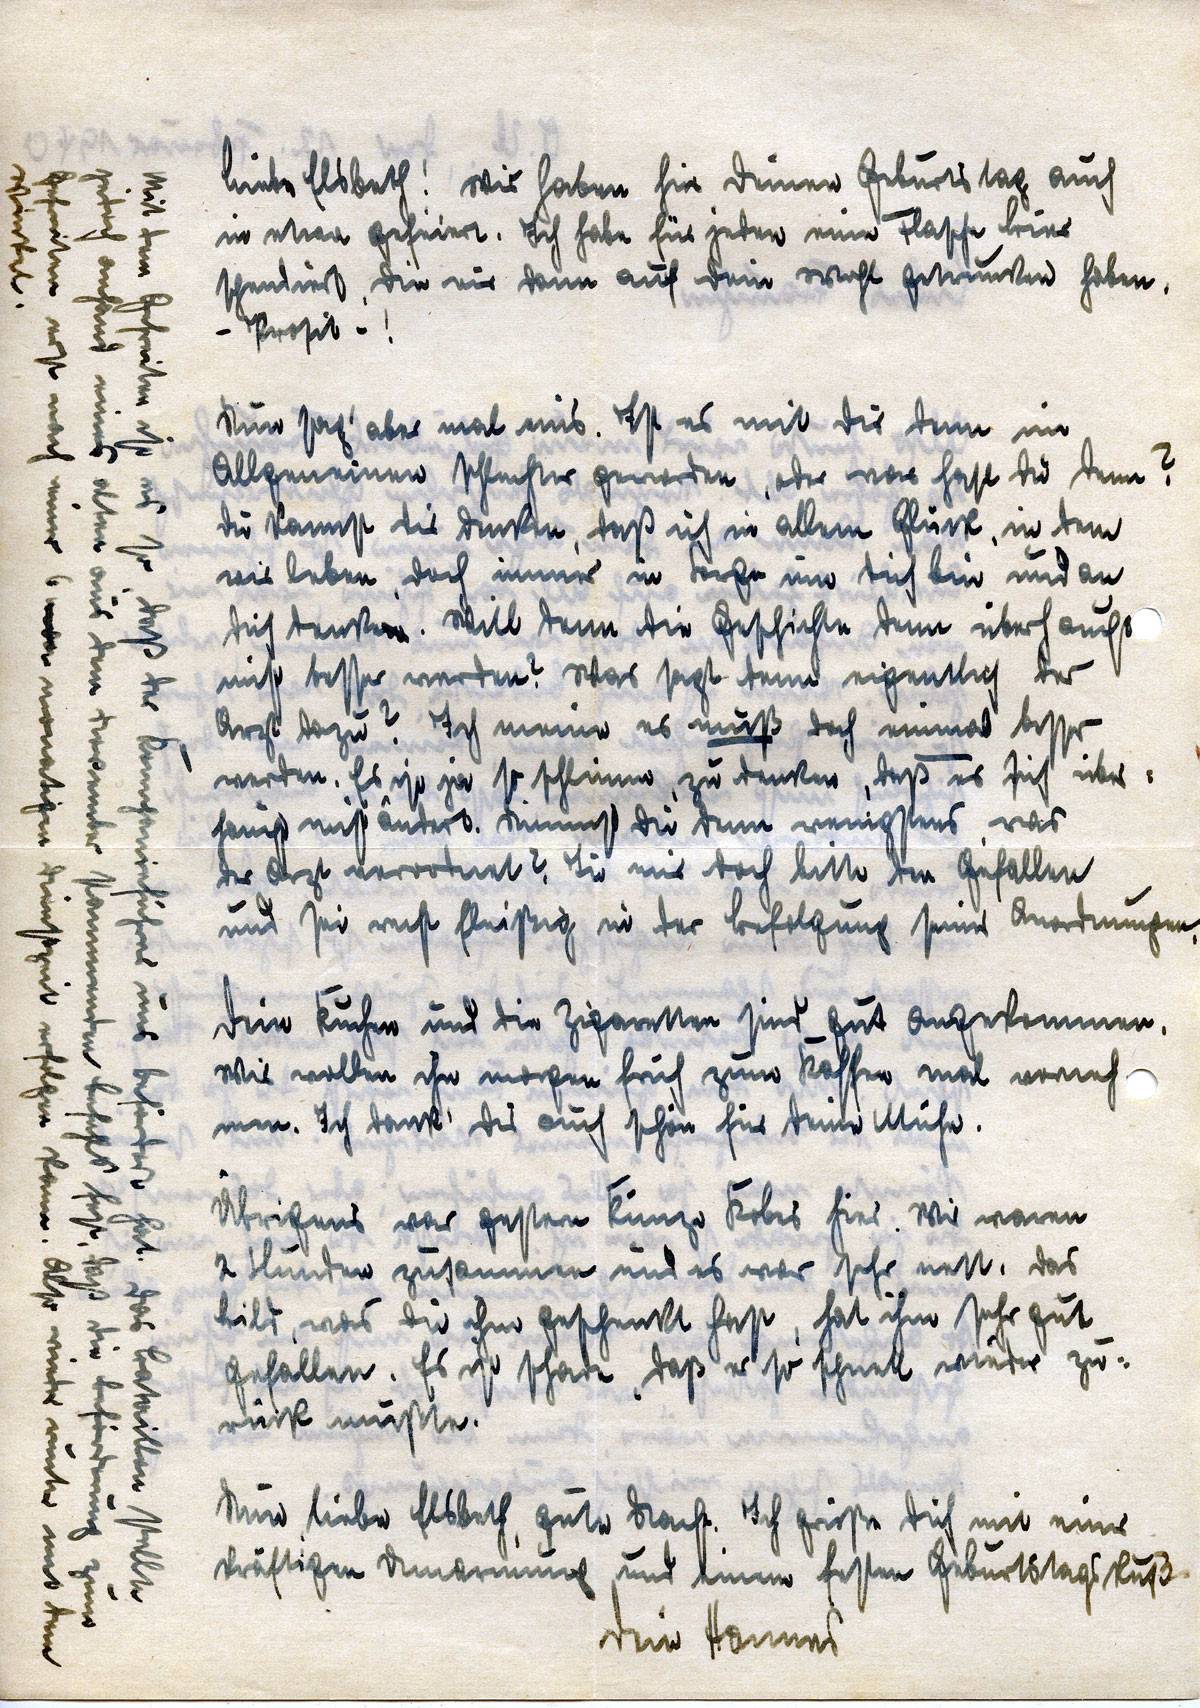 Liebe Elsbeth! Wir haben hier Deinen Geburtstag auch
in etwa gefeiert. Ich habe für jeden eine Flasche Bier
spendiert, die wir dann auf Dein Wohl getrunken haben.
- Prosit - !
Nun sag' aber mal eins. Ist es mit Dir denn im
Allgemeinen schlechter geworden, oder was hast Du denn?
Du kannst Dir denken, daß ich in allem Glück, in dem
wir leben, doch immer in Sorge um Dich bin und an
Dich denke. Will denn die Geschichte denn überhaupt
nicht besser werden? Was sagt denn eigentlich der
Arzt dazu? Ich meine es muß doch einmal besser
werden. Es ist ja so schlimm, zu denken, daß es sich über-
haupt nicht ändert. Nimmst Du denn wenigstens, was
der Arzt verordnet? Tu mir doch bitte den Gefallen
und sei recht fleißig in der Befolgung seiner Anordnungen.
Dein Kuchen und die Zigaretten sind gut angekommen.
Wir wollen ihn morgen früh zum Kaffee mal verneh
men. Ich dank' Dir auch schön für Deine Mühe.
Übrigens war gestern Kobes hier. Wir waren
2 Stunden zusammen und es war sehr nett. Das
Bild, was Du ihm geschenkt hast, hat ihm sehr gut
gefallen. Es ist schade, daß er so schnell wieder zu-
rück mußte.
Nun liebe Elsbeth, gute Nacht. Ich grüße Dich mit einer
kräftigen Umarmung und einem festen Geburtstagskuß
Dein Hannes
Mit dem Gefreiten ist es so, daß der Kompanieführer uns befördert hat. Das Bataillon stellte
jedoch anhand eines alten aus dem Dezember stammenden Befehls fest, daß die Beförderung zum
Gefreiten erst nach einer 6 monatigen Dienstzeit erfolgen kann. Also wieder runter mit dem
Winkel.